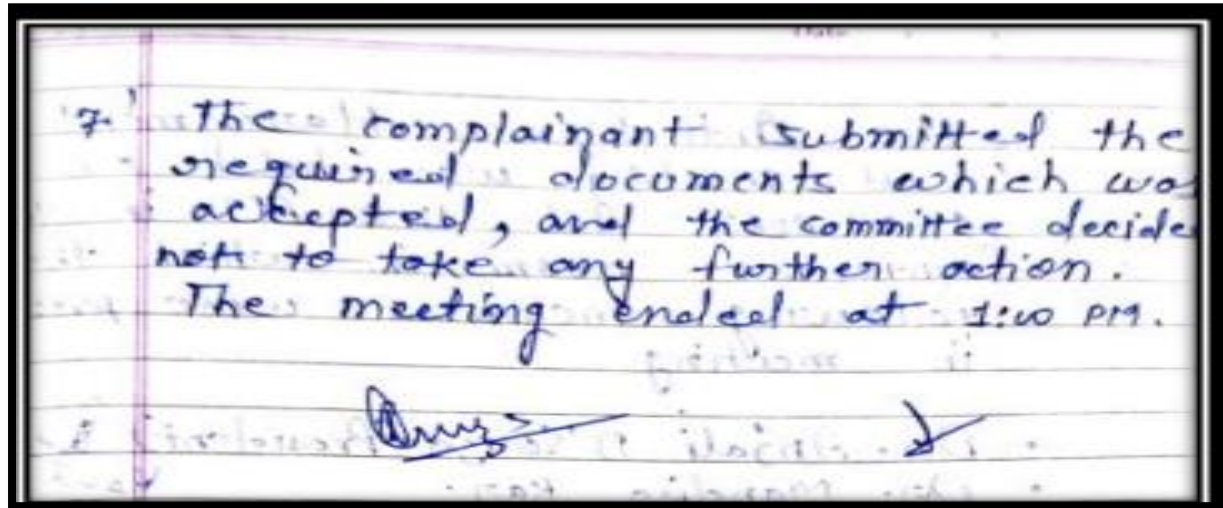 7. The complainant submitted the
required documents which was
accepted, and the committee decide
not to take any further action.
The meeting ended at PM.